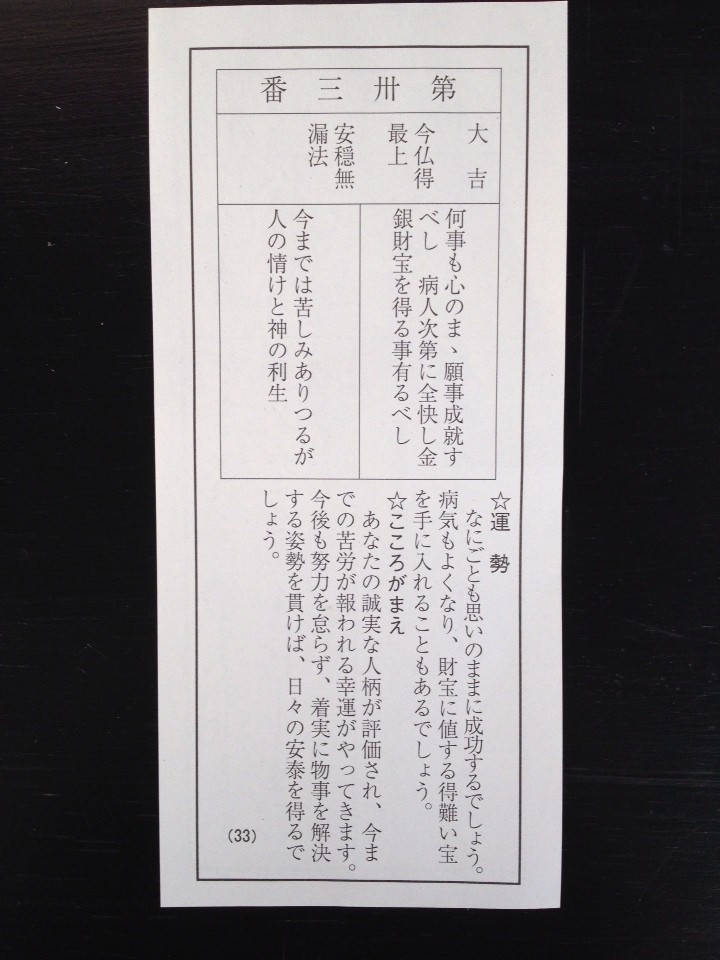 第卅三番
大吉
今仏得
最上
安穏無
漏法
何事も心のまゝ願事成就す
べし　病人次第に全快し金
銀財宝を得る事有るべし
今までは苦しみありつるが
人の情けと神の利生
☆運勢
なにごとも思いのままに成功するでしょう。
病気もよくなり、財宝に値する得難い宝
を手に入れることもあるでしょう。
☆こころがまえ
あなたの誠実な人柄が評価され、今ま
での苦労が報われる幸運がやってきます。
今後も努力を怠らず、着実に物事を解決
する姿勢を貫けば、日々の安泰を得るで
しょう。
(33)